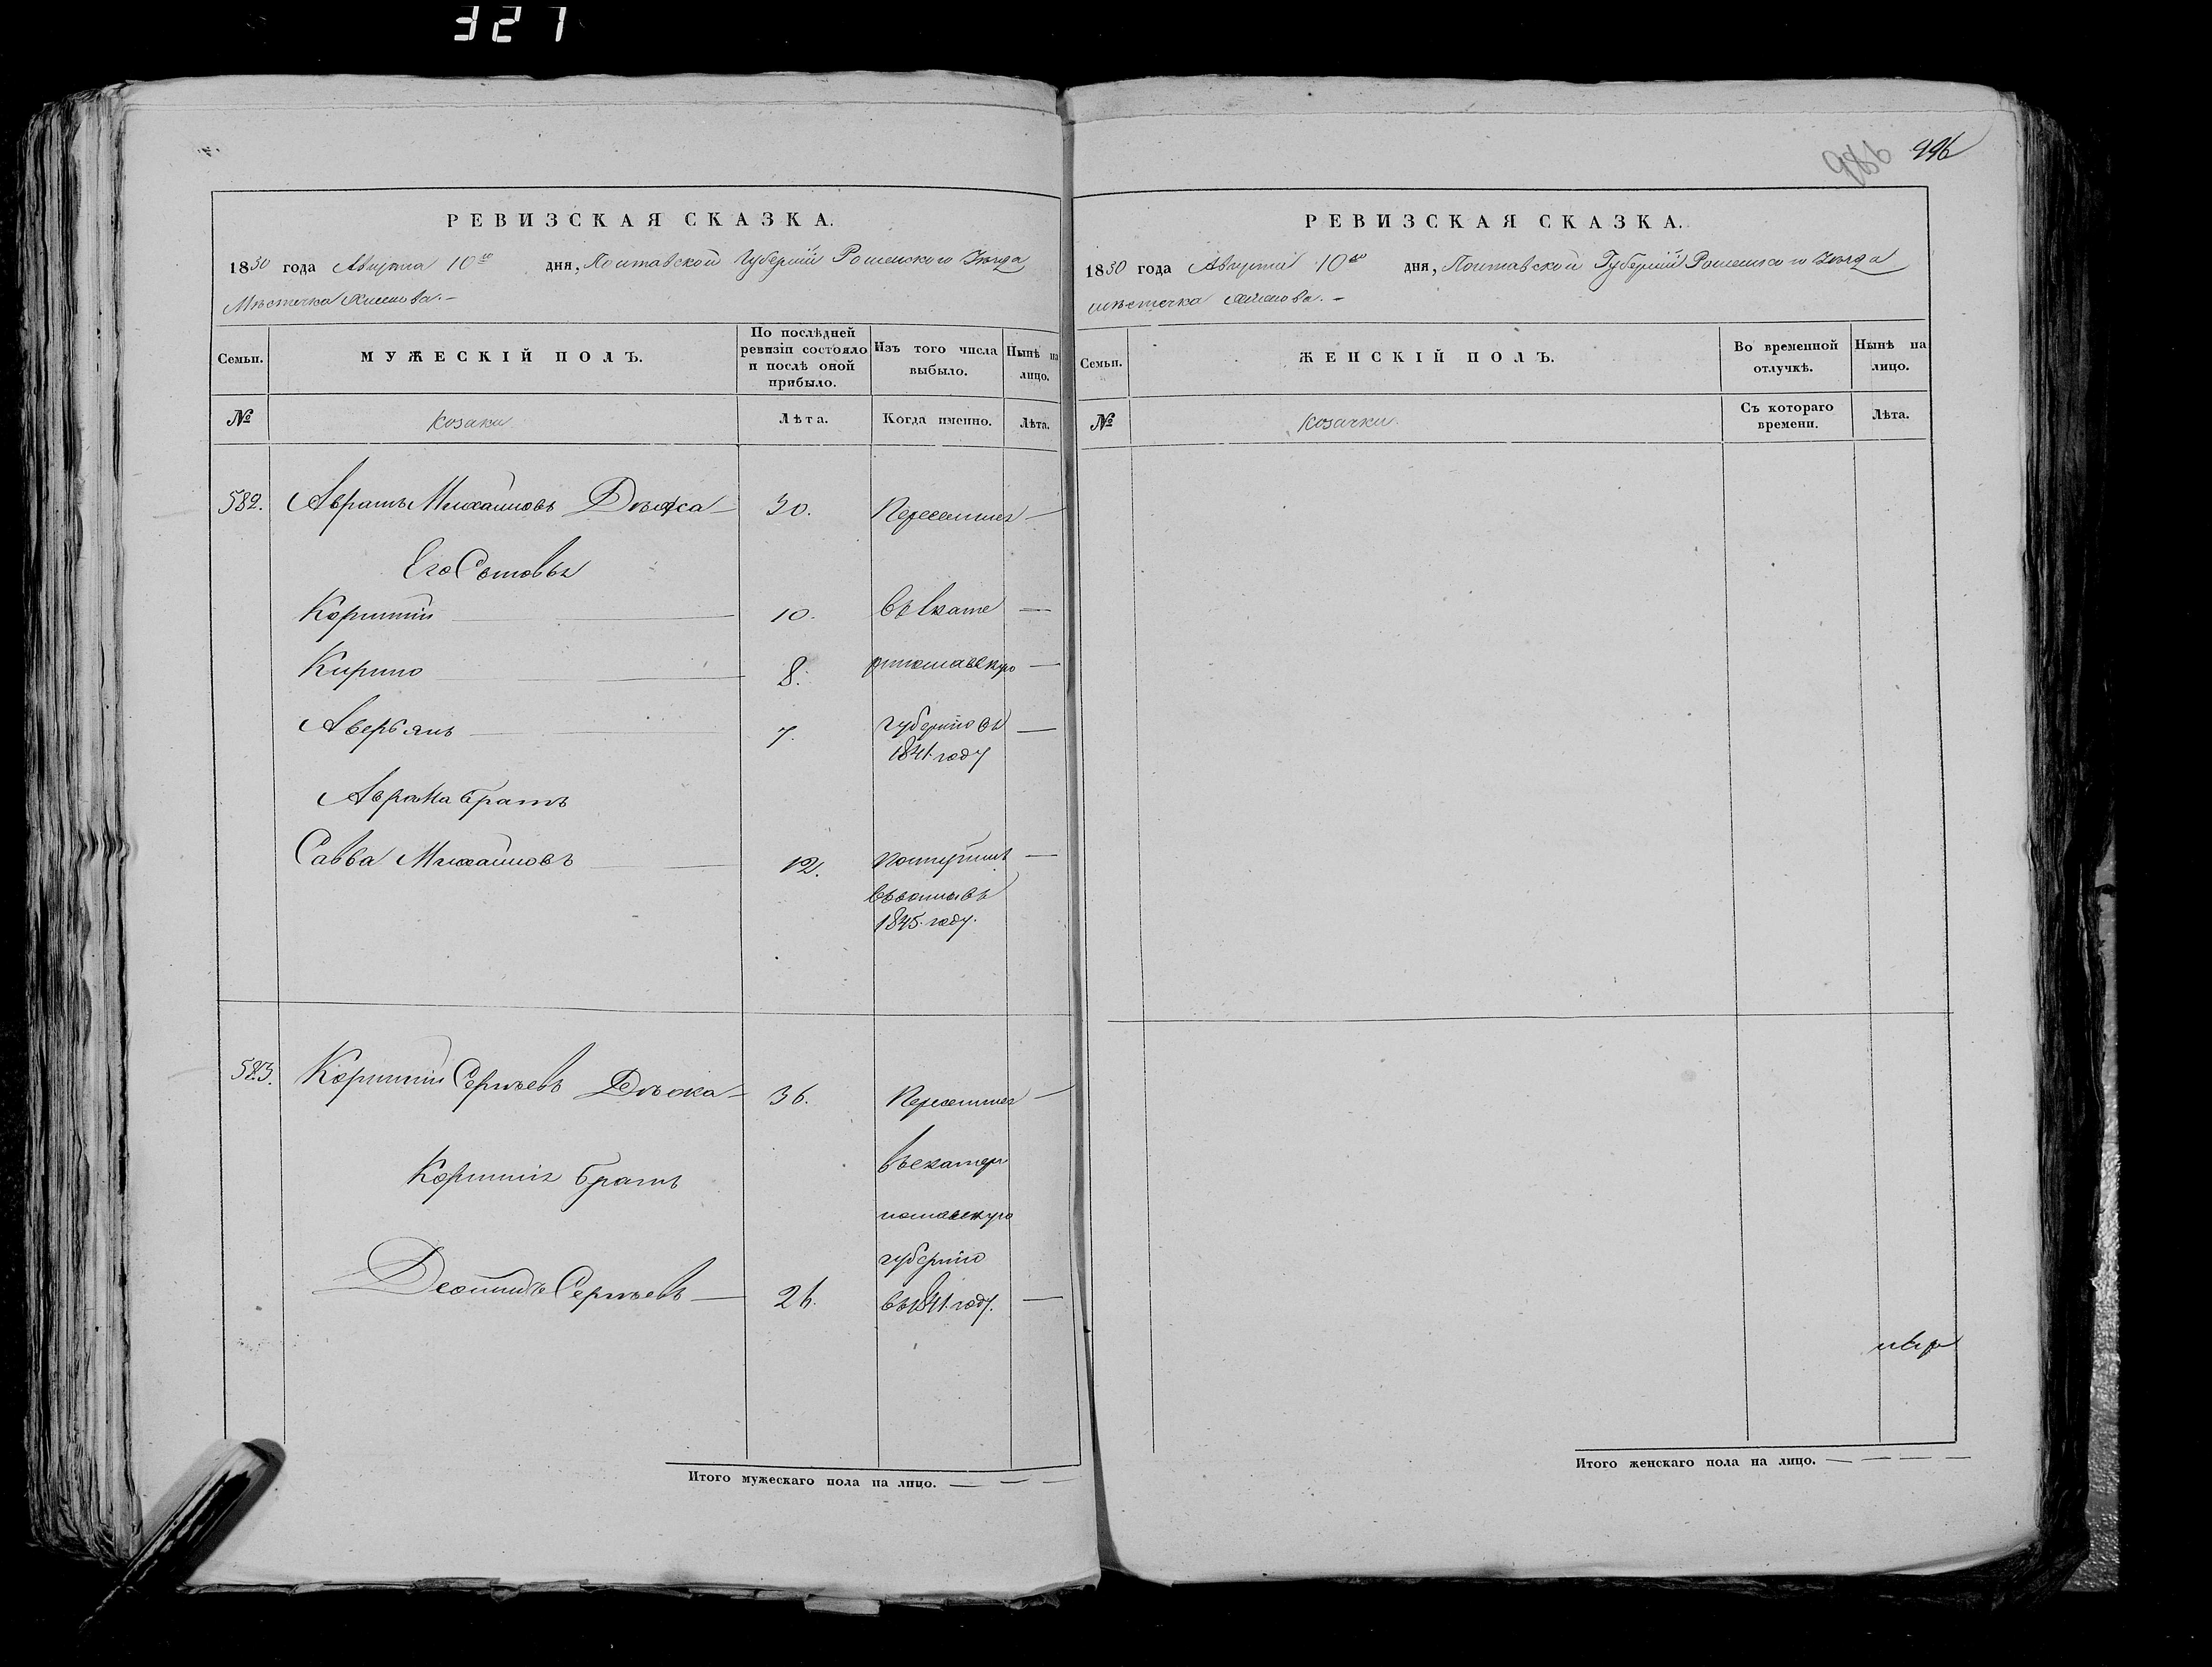 327
986 996
РЕВИЗСКАЯ СКАЗКА.
1850 года Августа 10го дня, Полтавской Губерніи Роменского Уѣзда
Мѣстечка Хмелова.-
Семьи.
МУЖЕСКІЙ ПОЛЪ.
По послѣдней ревизіи состояло и послѣ оной прибыло.
Изъ того числа выбыло.
Нынѣ на лицо.
№
Козаки
Лѣта.
Когда именно.
Лѣта.
582. Аврамъ Михайловъ Дѣжа 30. Переселился
Его Сыновья
Корнилій 10. въ Екате
Кирило 8. ринославскую
Аверьянъ 7. губернію въ
1841. году
Аврама братъ
Савва Михайловъ 12. поступилъ
1845. году.
583. Корнилій Сергѣевъ Дѣжа 36. Переселился
въ екатери
Корнилія братъ
нославскую
губернію
Леонтій Сергѣевъ 26. въ 1841. году.
Итого мужескаго пола на лицо.
РЕВИЗСКАЯ СКАЗКА.
1850 года Августа 10го дня, Полтавской Губерніи Роменского Уѣзда
мѣстечка Хмелова.-
Семьи.
ЖЕНСКІЙ ПОЛЪ.
Во временной отлучкѣ.
Нынѣ на лицо.
№
Козачки.
Съ котораго времени.
Лѣта.
Итого женскаго пола на лицо.